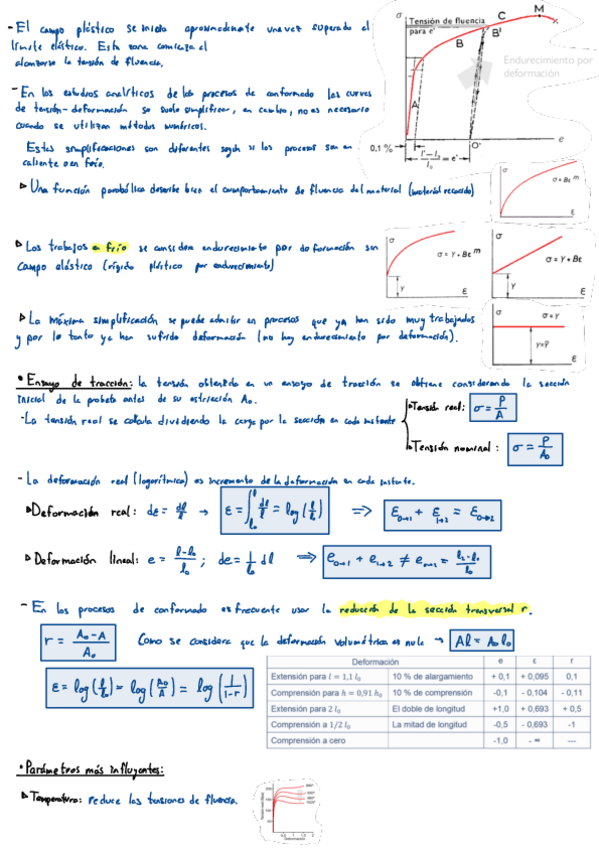 - El campo plástico se inicia aproximadamente una vez superado el
límite elástico. Esta zona comienza al
alcanzarse la tensión de fluencia.
σ
Tensión de fluencia
para e'
A
B
B'
C
M
Endurecimiento por
deformación
0,1 %
l'-l₀ / l₀ = e'
O'
e
- En los estudios analíticos de los procesos de conformado las curvas
de tensión-deformación se suele simplificar, en cambio, no es necesario
cuando se utilizan métodos numéricos.
Estas simplificaciones son diferentes según si los procesos son en
caliente o en frío.
▷ Una función parabólica describe bien el comportamiento de fluencia del material (material recocido)
σ
σ = Bε^m
ε
▷ Los trabajos en frío se considera endurecimiento por deformación sin
campo elástico (rígido plástico por endurecimiento)
σ
σ = Y + Bε^m
Y
ε
σ
σ = Y + Bε
Y
ε
▷ La máxima simplificación se puede admitir en procesos que ya han sido muy trabajados
y por lo tanto ya han sufrido deformación (no hay endurecimiento por deformación).
σ
σ = Y
ε
• Ensayo de tracción: la tensión obtenida en un ensayo de tracción se obtiene considerando la sección
inicial de la probeta antes de su estricción A₀.
- La tensión real se calcula dividiendo la carga por la sección en cada instante
Tensión real: σ = P/A
Tensión nominal: σ = P/A₀
- La deformación real (logarítmica) es incremento de la deformación en cada instante.
▷ Deformación real: dε = dl/l → ε = ∫_{l₀}^{l} dl/l = log(l/l₀) ⟹ ε₀→₁ + ε₁→₂ = ε₀→₂
▷ Deformación lineal: e = (l-l₀)/l₀ ; de = 1/l₀ dl ⟹ e₀→₁ + e₁→₂ ≠ e₀→₂ = (l₂-l₀)/l₀
- En los procesos de conformado es frecuente usar la reducción de la sección transversal r.
r = (A₀-A)/A₀ Como se considera que la deformación volumétrica es nula → Al = A₀l₀
ε = log(l/l₀) = log(A₀/A) = log(1/(1-r))
Deformación e ε r
Extensión para l = 1,1 l₀ 10 % de alargamiento + 0,1 + 0,095 0,1
Comprensión para h = 0,91 h₀ 10 % de comprensión -0,1 - 0,104 - 0,11
Extensión para 2 l₀ El doble de longitud +1,0 + 0,693 + 0,5
Comprensión a 1/2 l₀ La mitad de longitud -0,5 - 0,693 -1
Comprensión a cero -1,0 - ∞ ---
• Parámetros más influyentes:
▷ Temperatura: reduce las tensiones de fluencia.